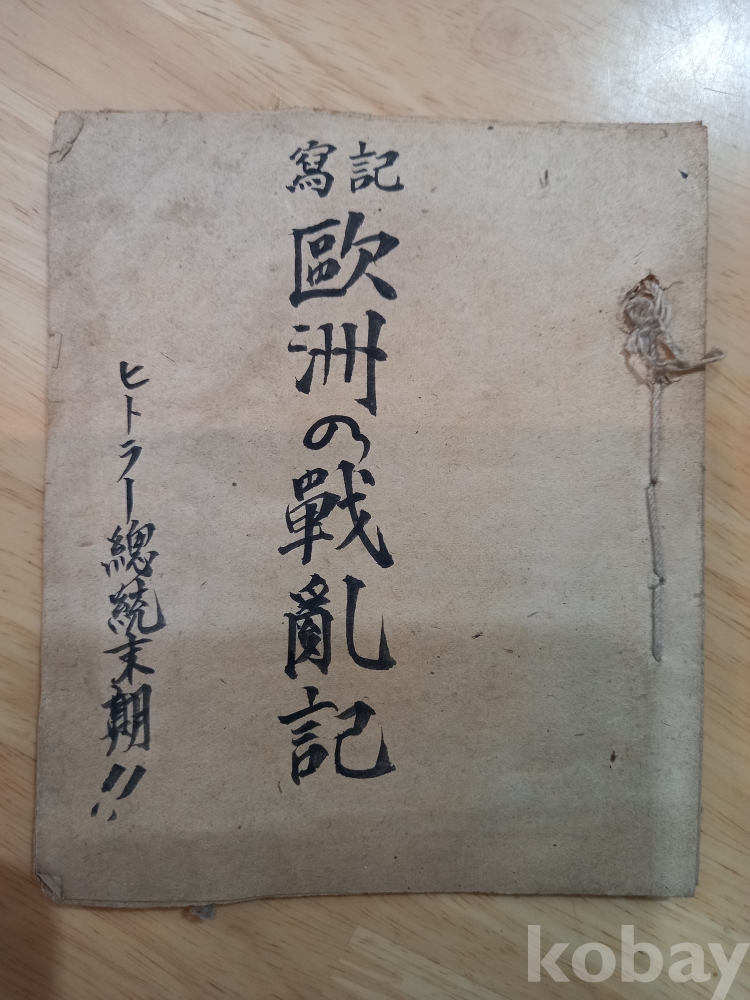 寫記
歐洲の戰亂記
ヒトラー總統末期!!
kobay